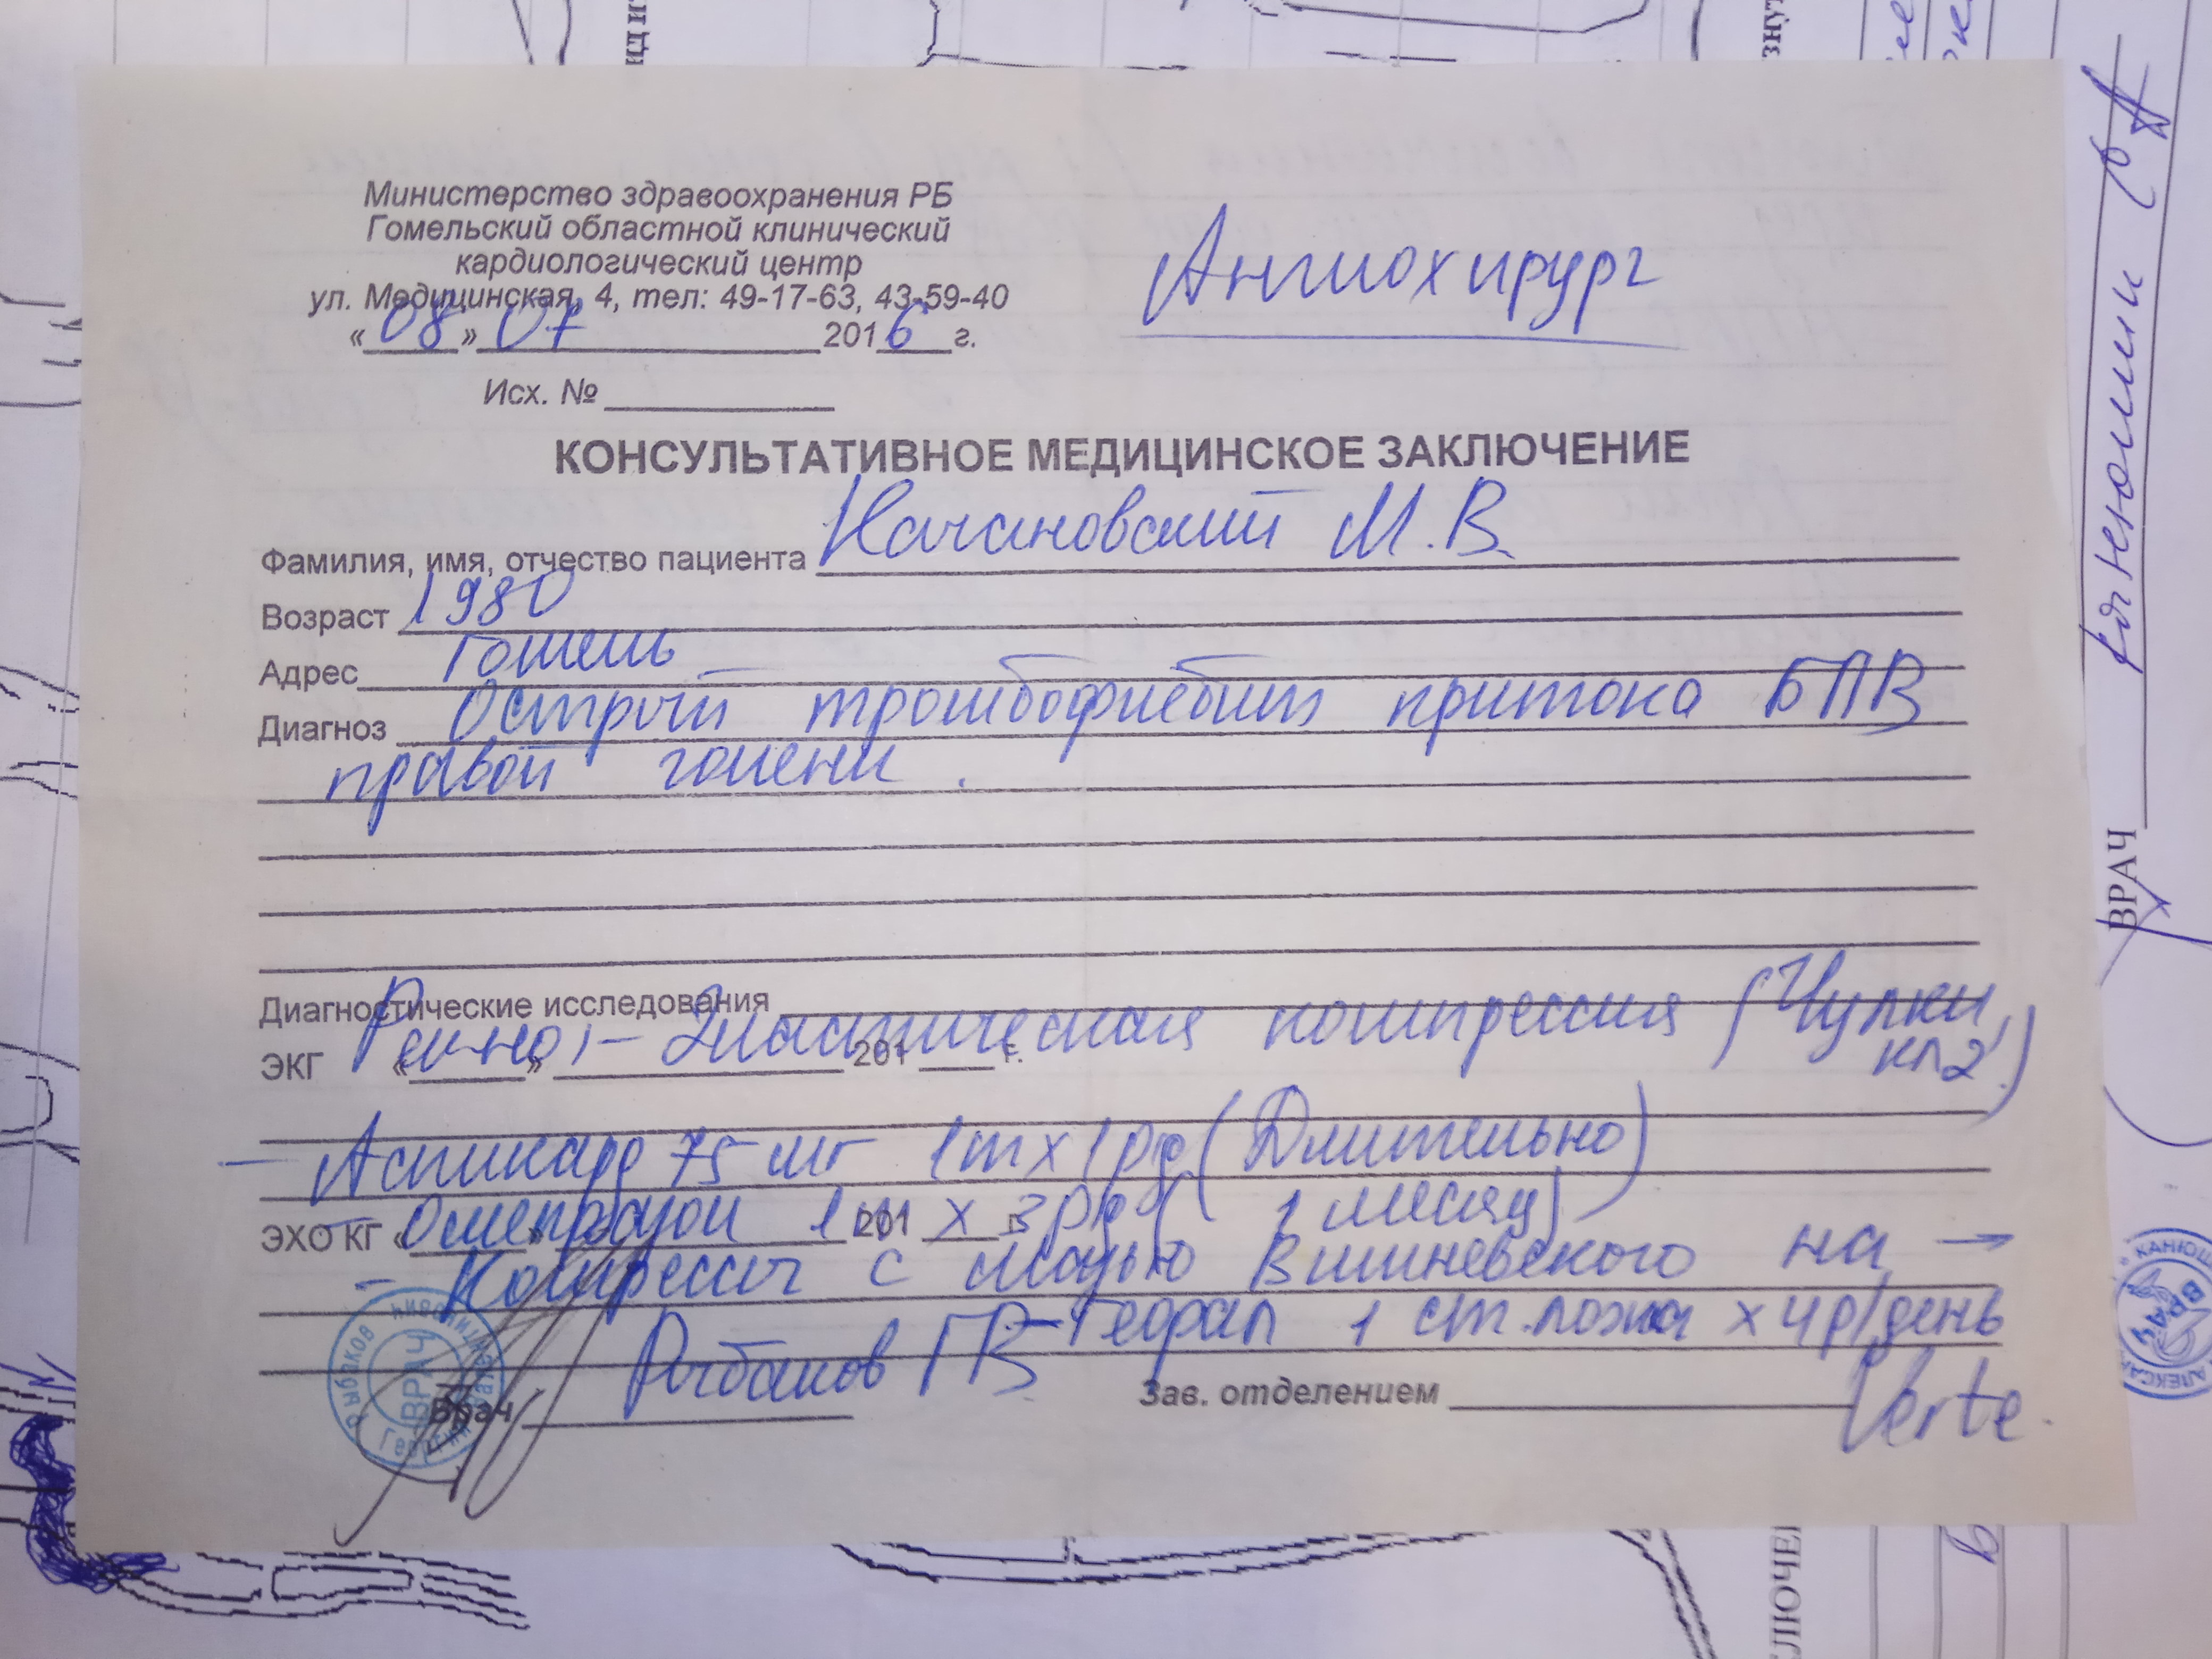 Министерство здравоохранения РБ
Гомельский областной клинический
кардиологический центр
ул. Медицинская, 4, тел: 49-17-63, 43-59-40
«08» 07 2016 г.
Исх. №
Ангиохирург
КОНСУЛЬТАТИВНОЕ МЕДИЦИНСКОЕ ЗАКЛЮЧЕНИЕ
Фамилия, имя, отчество пациента Качановский М.В.
Возраст 1980
Адрес Гомель
Диагноз Острый тромбофлебит притока БПВ
правой голени.
Диагностические исследования
Рек-но: - Эластическая компрессия (Чулки,
кл 2)
ЭКГ « » 201 г.
- Аспикард 75 мг 1т х 1рд (Длительно)
- Омепразол 1 х 3рд ( 1 месяц)
ЭХО КГ « » 201 г.
- Компрессы с мазью Вишневского на →
- Гефал 1 ст. ложка х 4р/день
Врач Рыбаков ГВ
Зав. отделением
Verte.
Рыбаков
ВРАЧ
ВРАЧ
ВРАЧ
КАНЮШ
АЛЕКСА
КЛЮЧЕ